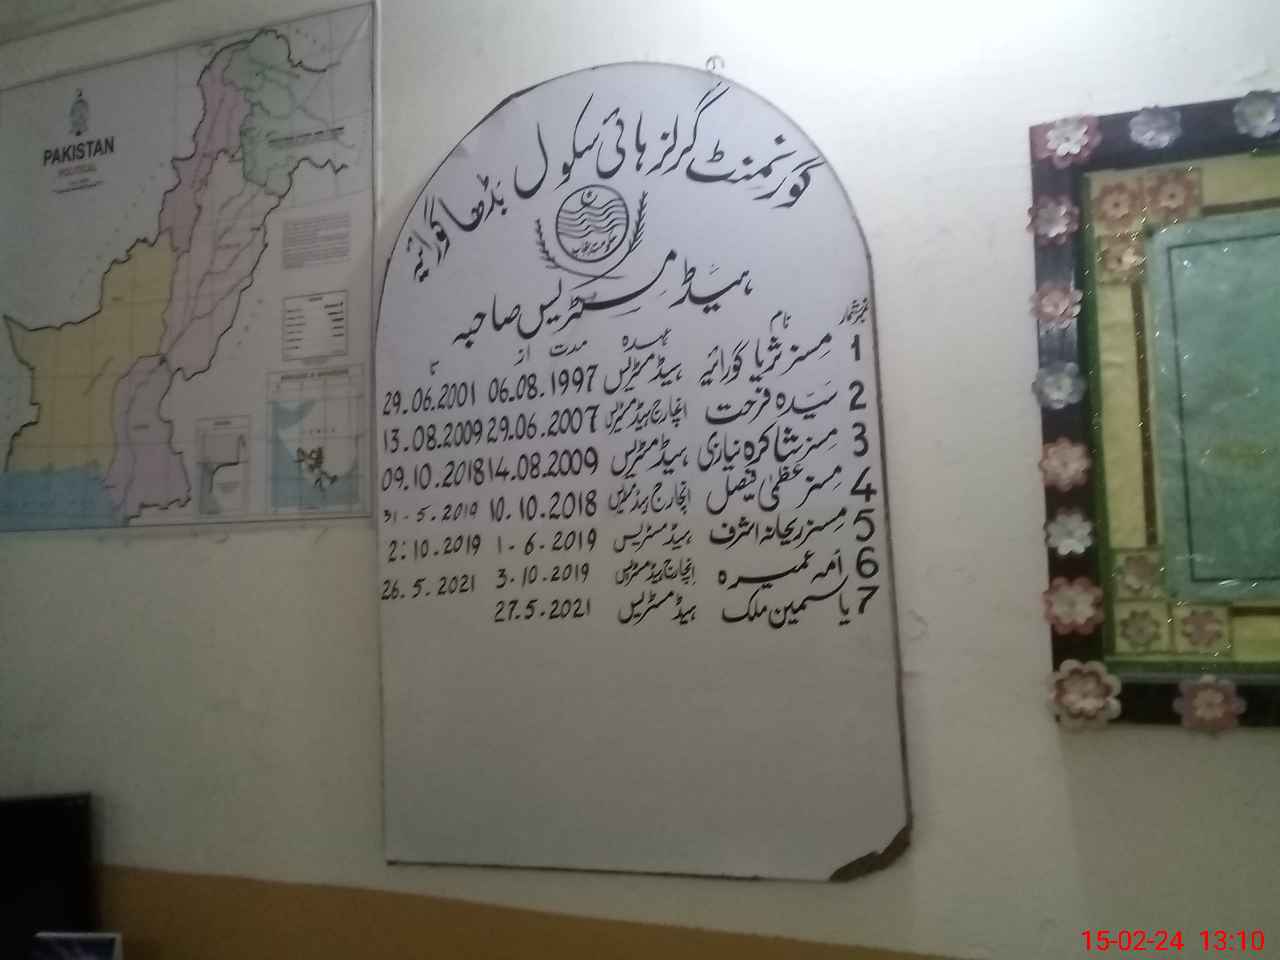 PAKISTAN
POLITICAL
گورنمنٹ گرلز ہائی سکول بڈھا گورائیہ
حکومت پنجاب
ہیڈ مسٹریس صاحبہ
نمبر شمار نام عہدہ مدت از تا
1 مسز ثریا گورائیہ ہیڈ مسٹریس 06.08.1997 29.06.2001
2 سیدہ فرحت انچارج ہیڈ مسٹریس 29.06.2007 13.08.2009
3 مسز شاکرہ نیازی ہیڈ مسٹریس 14.08.2009 09.10.2018
4 مسز عظمیٰ فیصل انچارج ہیڈ مسٹریس 10.10.2018 31-5.2019
5 مسز ریحانہ اشرف ہیڈ مسٹریس 1-6.2019 2.10.2019
6 آمہ عمیرہ انچارج ہیڈ مسٹریس 3.10.2019 26.5.2021
7 یاسمین ملک ہیڈ مسٹریس 27.5.2021
15-02-24 13:10